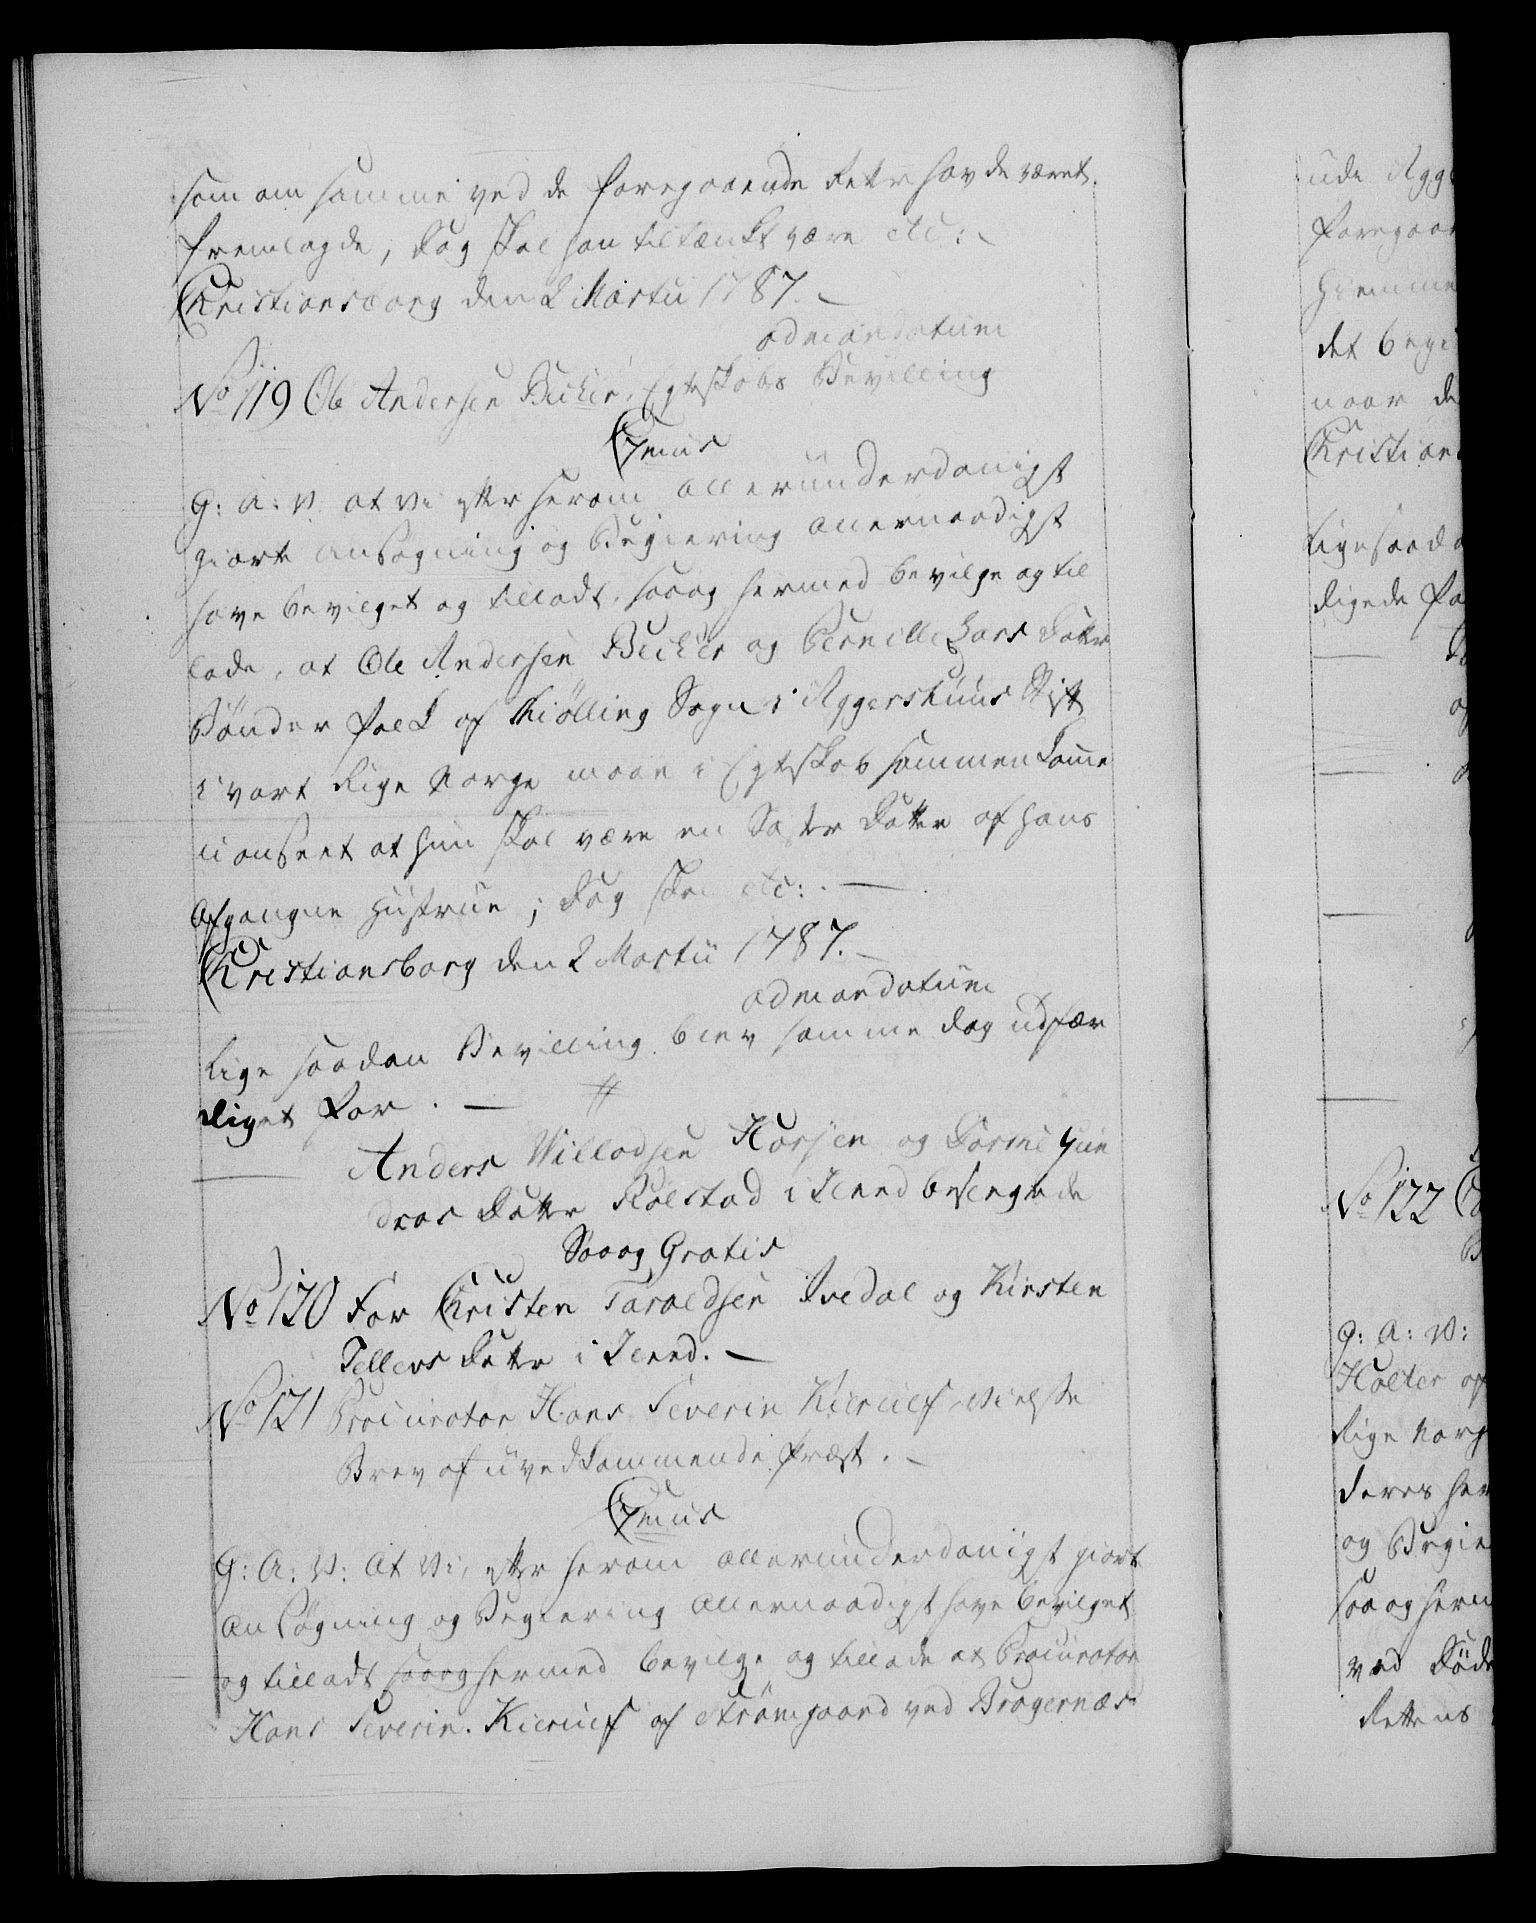 som om samme ved de foregaaende Retter havde været
fremlagde, dog skal han tiltænkt være etc:
Christiansborg den 2 Martii 1787.
ad mandatum
No 119 Ole Andersen Becker, Egteskabs Bevilling
C7mus
G: A: V. at Vi efter herom allerunderdanigst
giorte Ansøgning og Begiering allernaadigst
have bevilget og tilladt, saaog hermed bevilge og til
lade, at Ole Andersen Becker og Pernille Lars Datter
Bønder folk af Kiølling Sogn i Aggershuus Stift
i vort Rige Norge maae i Egteskab sammenkomme
uanseet at hun skal være en Søster Datter af hans
Afgangne Hustrue; dog skal etc:
Christiansborg den 2 Martii 1787.
ad mandatum
Lige saadan Bevilling blev samme dag udfær
diget for.
Anders Willadsen Horsen og Dorthe Gun
dros Datter Rolstad i Slend besengrede
Saaog Gratis
No 120 For Christen Taraldsen Tvedal og Kirsten
Tellevs Datter i Slend.
No 121 Procurator Hans Severin Kierulf, Vielse
Brev af uvedkommende Præst.
C7mus
G: A: V: At Vi, efter herom allerunderdanigst giort
Ansøgning og Begiering Allernaadigst have bevilget
og tilladt saaog hermed bevilge og tillade at Procurator
Hans Severin Kierulf af Strømgaard ved Bragernæs
ude Agg
foregaa
hiemme
det begi
naar de
Christian
Ligesaada
digede fo
No 122
G: A: V:
Holter af
Rige Norg
deres her
og Begie
saaog herm
ved Døde
Rettens